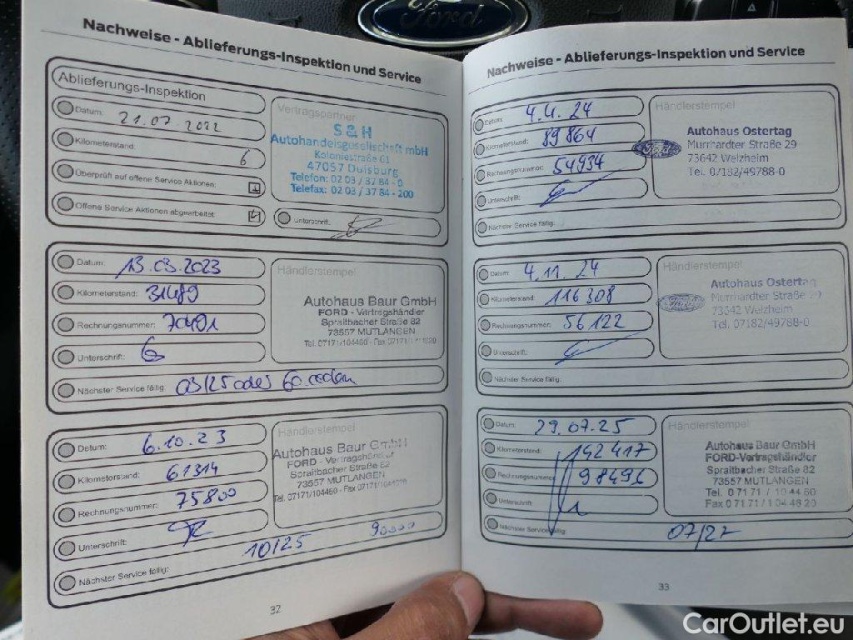 Ford
Nachweise - Ablieferungs-Inspektion und Service
Ablieferungs-Inspektion
Datum: 21.07.2022
Kilometerstand: 6
Überprüft auf offene Service Aktionen:
Offene Service Aktionen abgearbeitet:
Vertragspartner
S&H
Autohandelsgesellschaft mbH
Koloniestraße 61
47057 Duisburg
Telefon: 02 03 / 37 84 - 0
Telefax: 02 03 / 37 84 - 200
Unterschrift:
Datum: 13.03.2023
Kilometerstand: 31489
Rechnungsnummer: 70401
Unterschrift:
Nächster Service fällig: 03/25 oder 60
Händlerstempel
Autohaus Baur GmbH
FORD - Vertragshändler
Spraitbacher Straße 82
73557 MUTLANGEN
Tel. 07171/104460 - Fax 07171/
Datum: 6.10.23
Kilometerstand: 61314
Rechnungsnummer: 75800
Unterschrift:
Nächster Service fällig: 10/25 90000
Händlerstempel
Autohaus Baur GmbH
FORD - Vertragshändler
Spraitbacher Straße 82
73557 MUTLANGEN
Tel. 07171/104460 - Fax 07171/
32
Nachweise - Ablieferungs-Inspektion und Service
Datum: 4.4.24
Kilometerstand: 89864
Rechnungsnummer: 54934
Unterschrift:
Nächster Service fällig:
Händlerstempel
Ford
Autohaus Ostertag
Murrhardter Straße 29
73642 Welzheim
Tel. 07182/49788-0
Datum: 4.11.24
Kilometerstand: 116308
Rechnungsnummer: 56122
Unterschrift:
Nächster Service fällig:
Händlerstempel
Autohaus Ostertag
Murrhardter Straße 29
73642 Welzheim
Tel. 07182/49788-0
Datum: 29.07.25
Kilometerstand: 142417
Rechnungsnummer: 98496
Unterschrift:
Nächster Service fällig: 07/27
Händlerstempel
Autohaus Baur GmbH
FORD-Vertragshändler
Spraitbacher Straße 82
73557 MUTLANGEN
Tel. 0 71 71 / 10 44 60
Fax 0 71 71 / 1 04 48 20
33
CarOutlet.eu